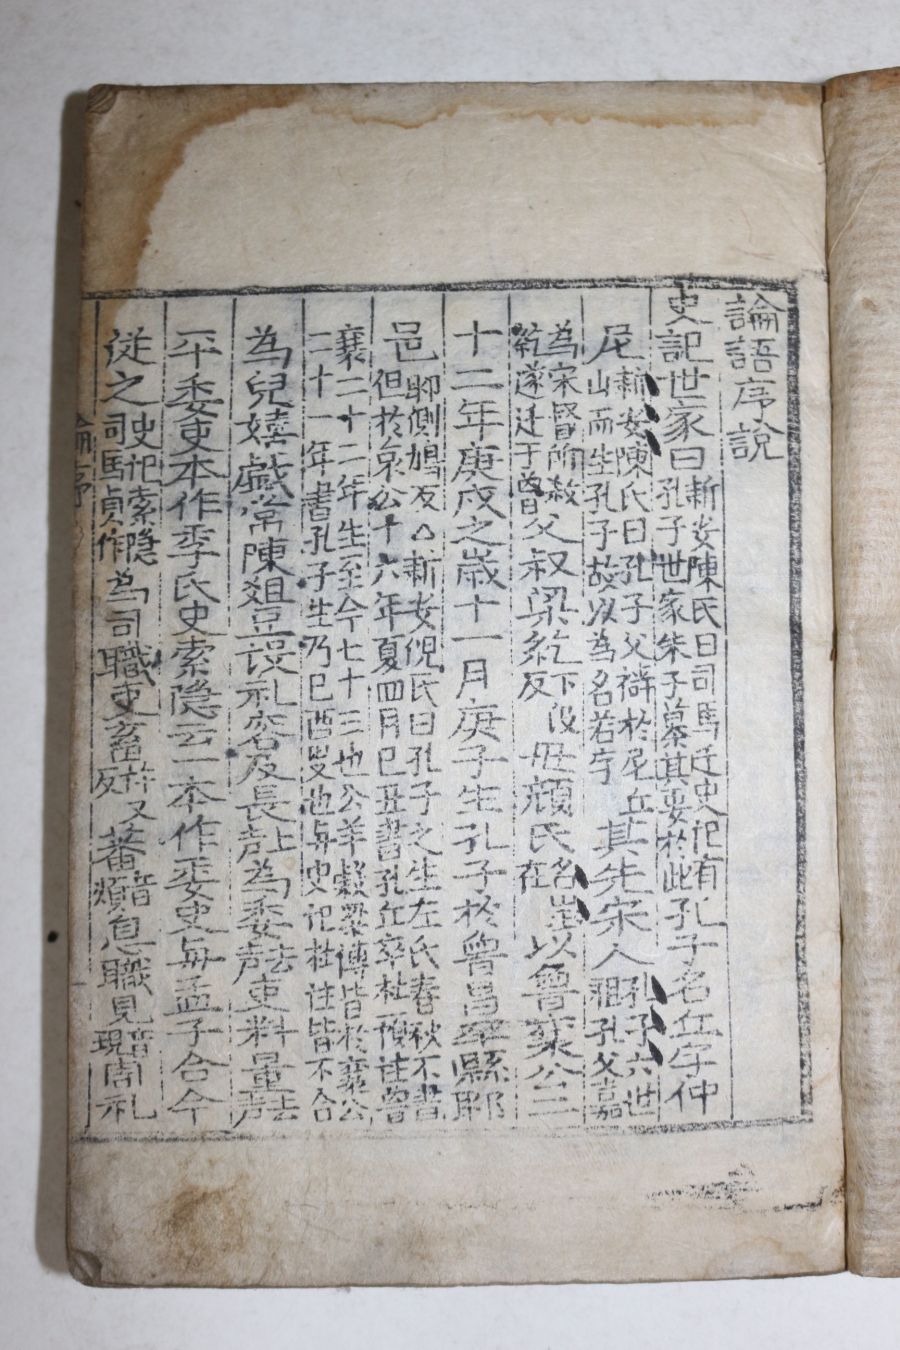 論語序說
史記世家曰新安陳氏曰司馬迁史记有孔子世家朱子纂其要於此孔子名丘字仲
尼新安陳氏曰孔子父禱於尼丘山而生孔子故以為名若字其先宋人孔子六世祖孔父嘉
為宋督所殺紇遂迁于魯父叔梁紇下没反母顏氏名在以魯襄公二
十二年庚戌之歲十一月庚子生孔子於魯昌平縣郰
邑郰側鳩反△新安倪氏曰孔子之生左氏春秋不書但於哀公十六年夏四月己丑書孔丘卒杜預注魯
襄二十二年生至今七十三也公羊穀梁傳皆於襄公二十一年書孔子生乃己酉歲也与史记杜注皆不合
為兒嬉戲常陳俎豆設礼容及長上声為委去声吏料量去声
平委吏本作季氏史索隐云一本作委史与孟子合今
從之史记索隐司馬貞作為司職吏畜許又反蕃音煩息職見音現周礼
論序